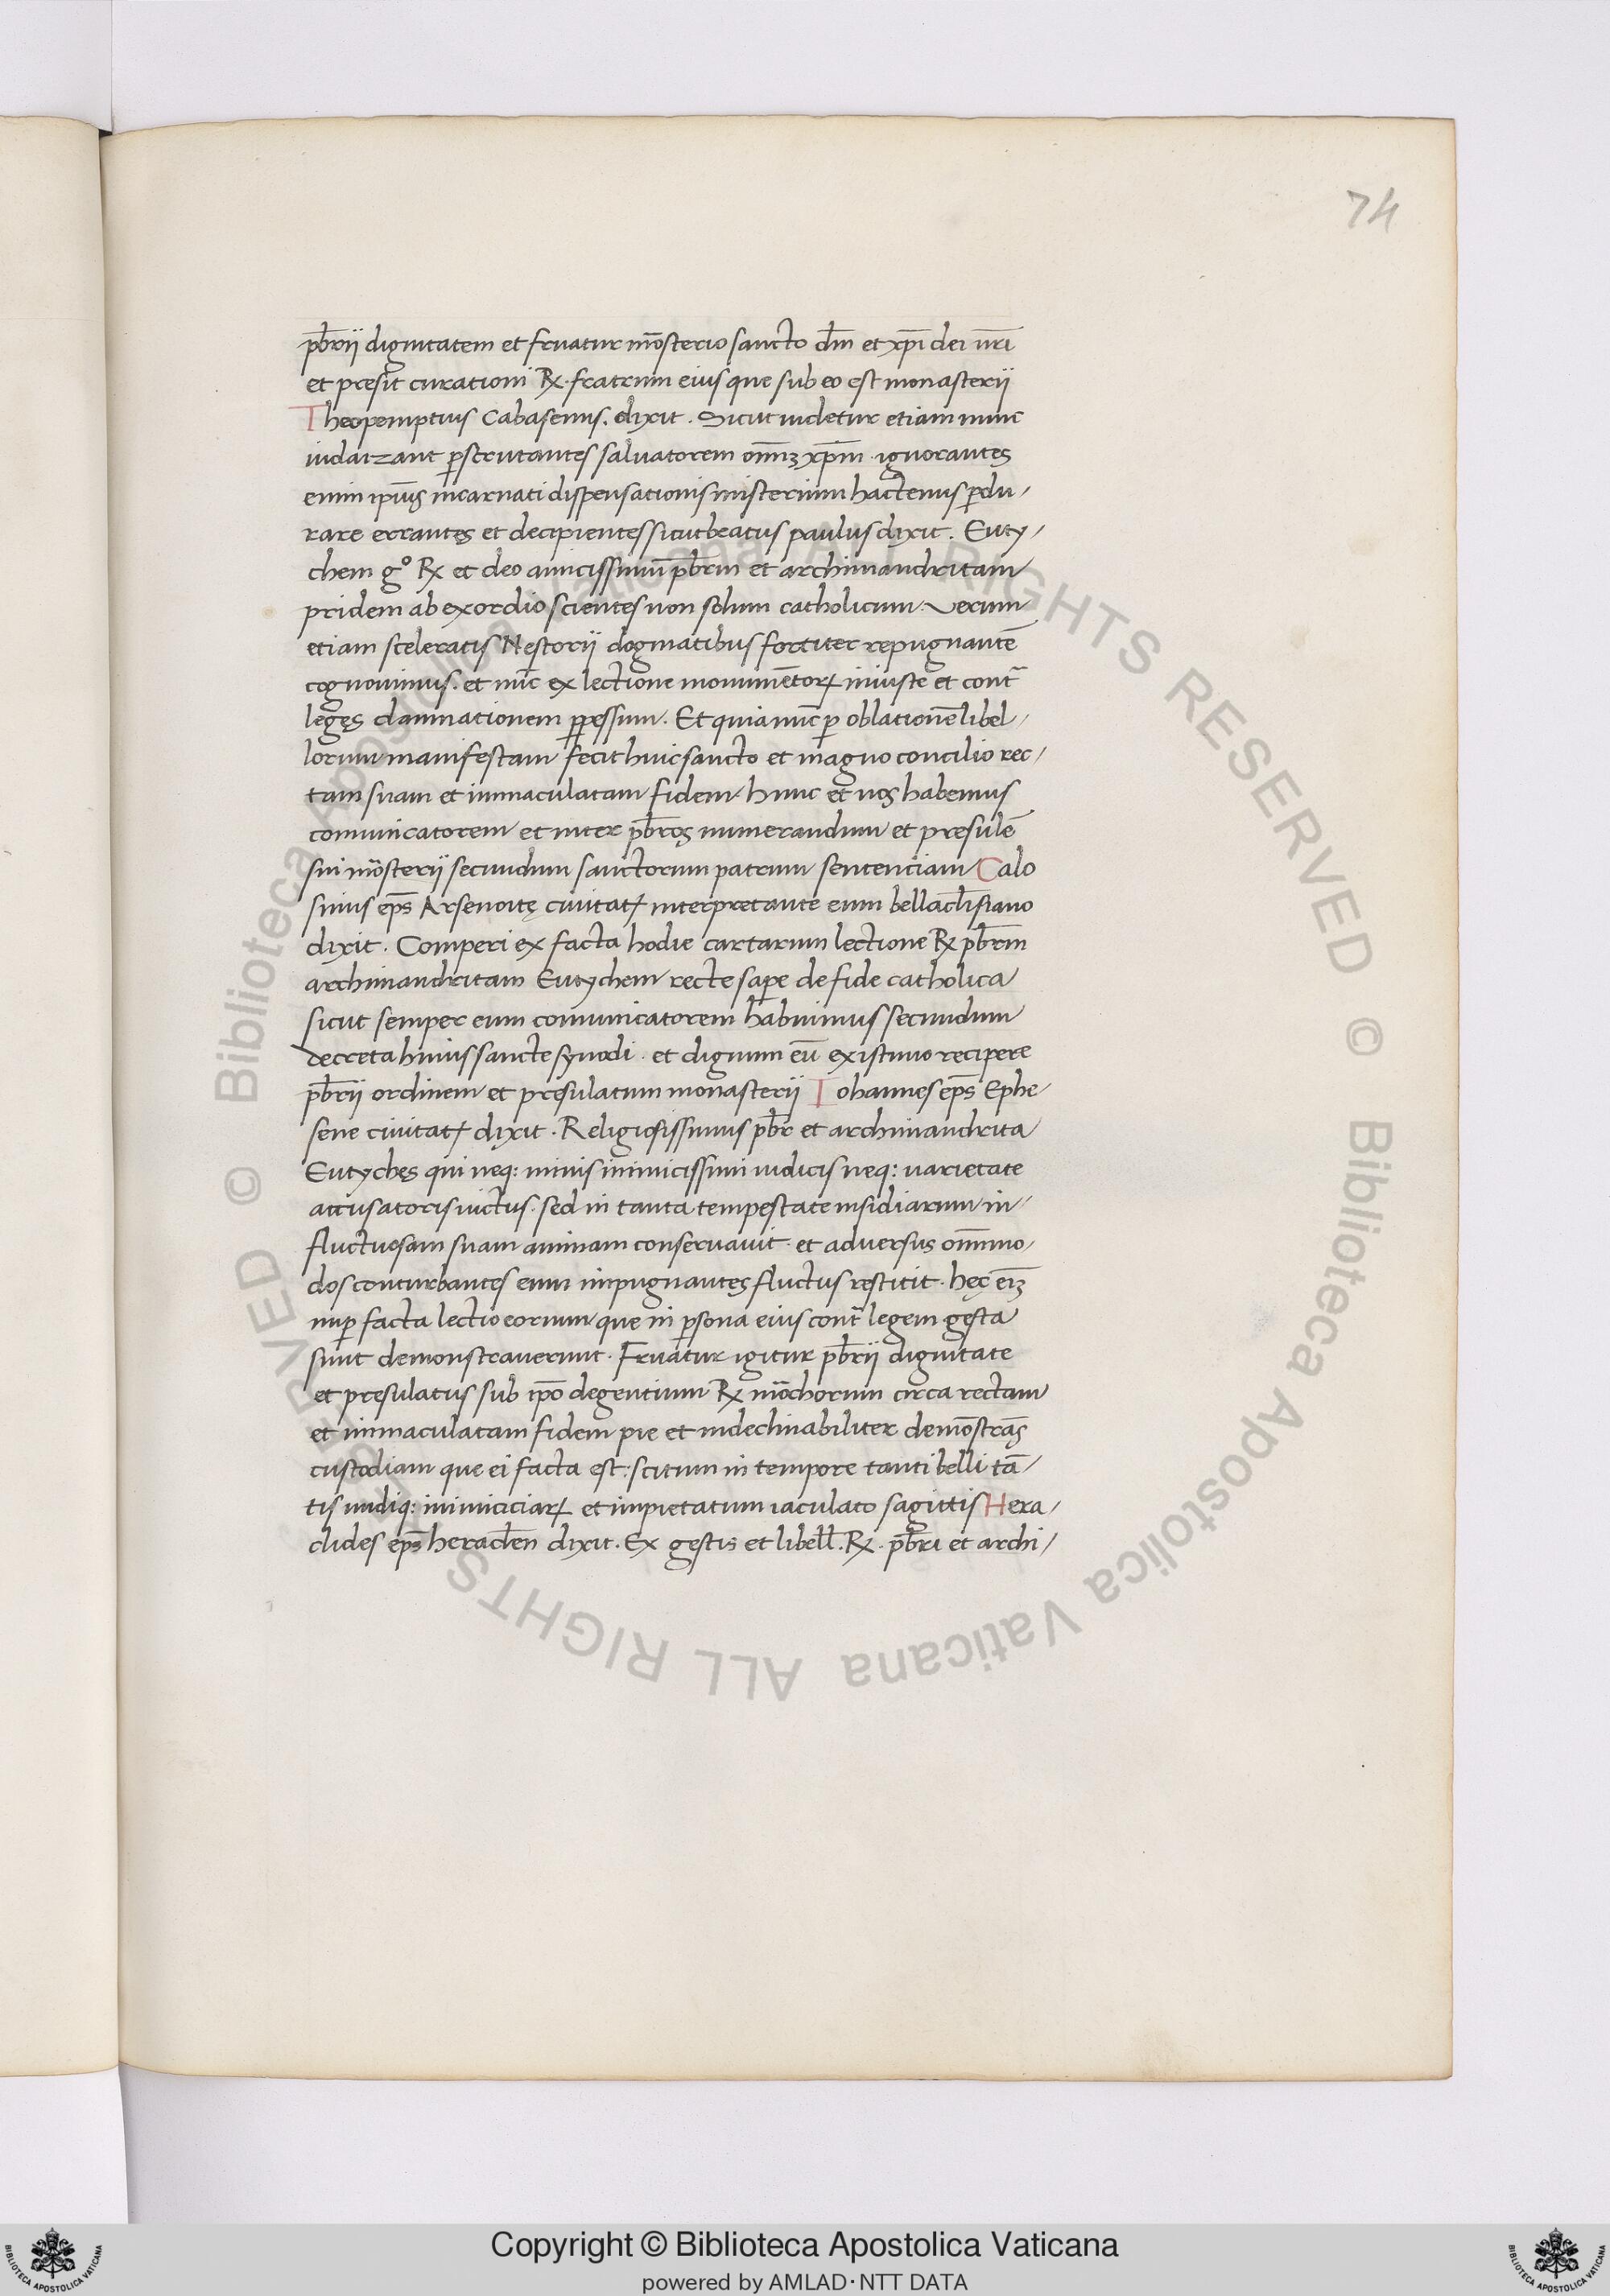 74
pb̅rij dignitatem et fruatur mo̅sterio sancto dm̅ et xp̅i dei nr̅i
et presit curationi R̲x. fratrum eius que sub eo est monasterij
Theopemptus Cabasenus. dixit. Sicut uidetur etiam nunc
iudaizant p̱scrutantes saluatorem om̅ꝫ xp̅m. ignorantes
enim ip̅ius incarnati dispensationis misterium hactenus p̱du/
rare errantes et decipientes sicut beatus paulus dixit. Euty/
chem gº Rx et deo amicissimu̅ pb̅rm et archimandritam
pridem ab exordio scientes non solum catholicum. Verum
etiam sceleratis Nestorij dogmatibus fortiter repugnante̅
cognouimus. et nu̅c ex lectione monume̅toꝝ iniuste et contᷓ
leges damnationem p̱pessum. Et quia nu̅c p̱ oblatione̅ libel/
lorum manifestam fecit huic sancto et magno concilio rec/
tam suam et immaculatam fidem. hunc et nos habemus
comunicatorem et inter pb̅ros numerandum et presule̅
sui mo̅sterij secundum sanctorum patrum sentenciam Calo
sirius ep̅s Arsenoitę ciuitatꝭ interpretante eum bellachisiano
dixit. Comperi ex facta hodie cartarum lectione Rx pb̅rm
archimandritam Eutychem recte sapere de fide catholica
sicut semper eum comunicatorem habuimus secundum
decreta huius sancte synodi. et dignum eu̅ existimo recipere
pb̅rij ordinem et presulatum monasterij Iohannes ep̅s Ephe/
sene ciuitatꝭ dixit. Religiosissimus pb̅r et archimandrita
Eutyches qui neq: minis inimicissimi iudicis neq: uarietate
accusatoris uictus. sed in tanta tempestate insidiarum in/
fluctuosam suam animam conseruauit. et aduersus om̅imo/
dos conturbantes eum impugnantes fluctus restitit. hęc ei̅ꝫ
nup̱ facta lectio eorum que in p̱sona eius contᷓ legem gesta
sunt demonstrauerunt. Fruatur igitur pb̅rij dignitate
et presulatus sub ip̅o degentium Rx mo̅chorum circa rectam
et immaculatam fidem pie et indeclinabiliter demo̅stra̅s
custodiam que ei facta est: scitum in tempore tanti belli ta̅/
tis undiq: inimiciciaꝝ et impietatum iaculato sagittis Hera/
clides ep̅s heracle̅n dixit. Ex gestis et libell̅. Rx. pb̅ri et archi/
© Biblioteca Apostolica Vaticana ALL RIGHTS RESERVED © Biblioteca Apostolica Vaticana ALL RIGHTS RESERVED
Copyright © Biblioteca Apostolica Vaticana
powered by AMLAD·NTT DATA
BIBLIOTECA APOSTOLICA VATICANA
BIBLIOTECA APOSTOLICA VATICANA